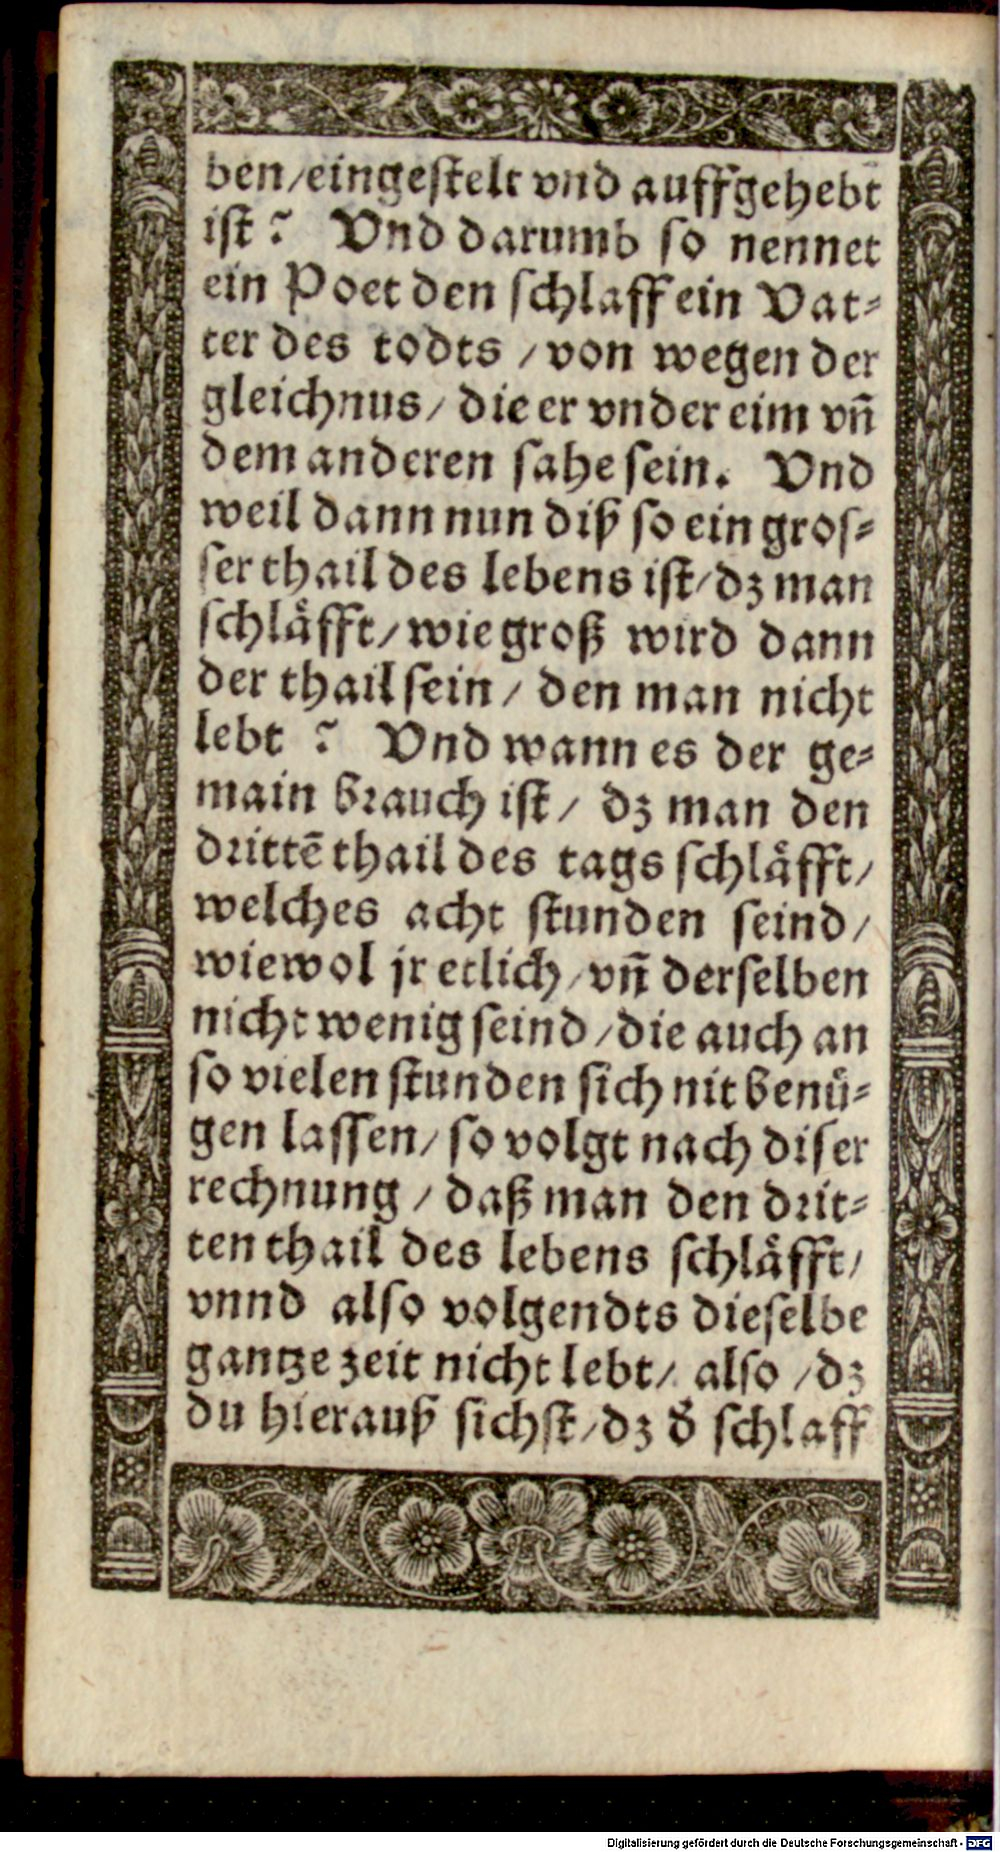 ben/eingestelt vnd auffgehebt
ist? Vnd darumb so nennet
ein Poet den schlaff ein Vat-
ter des todts / von wegen der
gleichnus / die er vnder eim vn̄
dem anderen sahe sein. Vnd
weil dann nun diß so ein gros-
ser thail des lebens ist/dz man
schlåfft / wie groß wird dann
der thail sein / den man nicht
lebt ? Vnd wann es der ge-
main brauch ist / dz man den
drittē thail des tags schlåfft /
welches acht stunden seind /
wiewol jr etlich / vn̄ derselben
nicht wenig seind / die auch an
so vielen stunden sich nit benü-
gen lassen / so volgt nach diser
rechnung / daß man den drit-
ten thail des lebens schlåfft /
vnnd also volgendts dieselbe
gantze zeit nicht lebt / also / dz
du hierauß sichst / dz d̕ schlaff
Digitalisierung gefördert durch die Deutsche Forschungsgemeinschaft - DFG